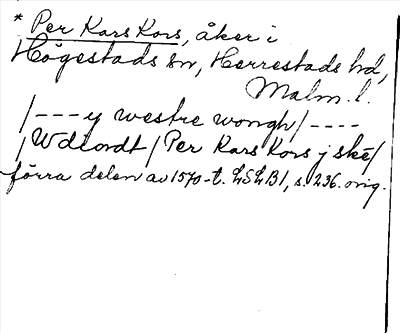 * Per Kars Kors, åker i
Högestads sn, Herrestads hd,
Malm. l.
/---y westre wongh/----
/Wdlondt/Per Kars Kors j skē/
förra delen av 1570-t. LSLB1, s. 236. orig.